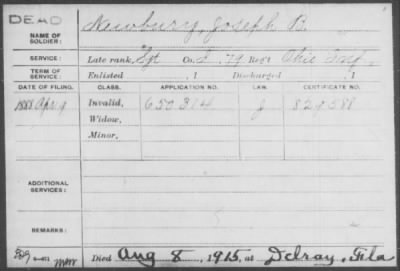 DEAD
NAME OF SOLDIER: Newbury, Joseph B.
SERVICE: Late rank, Sgt Co. I, 79 Reg't Ohio Inf.
TERM OF SERVICE: Enlisted , 1 Discharged , 1
DATE OF FILING. CLASS. APPLICATION NO. LAW. CERTIFICATE NO.
1888 Apr 9 Invalid, 650314 J 829588
Widow,
Minor,
ADDITIONAL SERVICES:
REMARKS:
Died Aug 8, 1915, at Delray, Fla